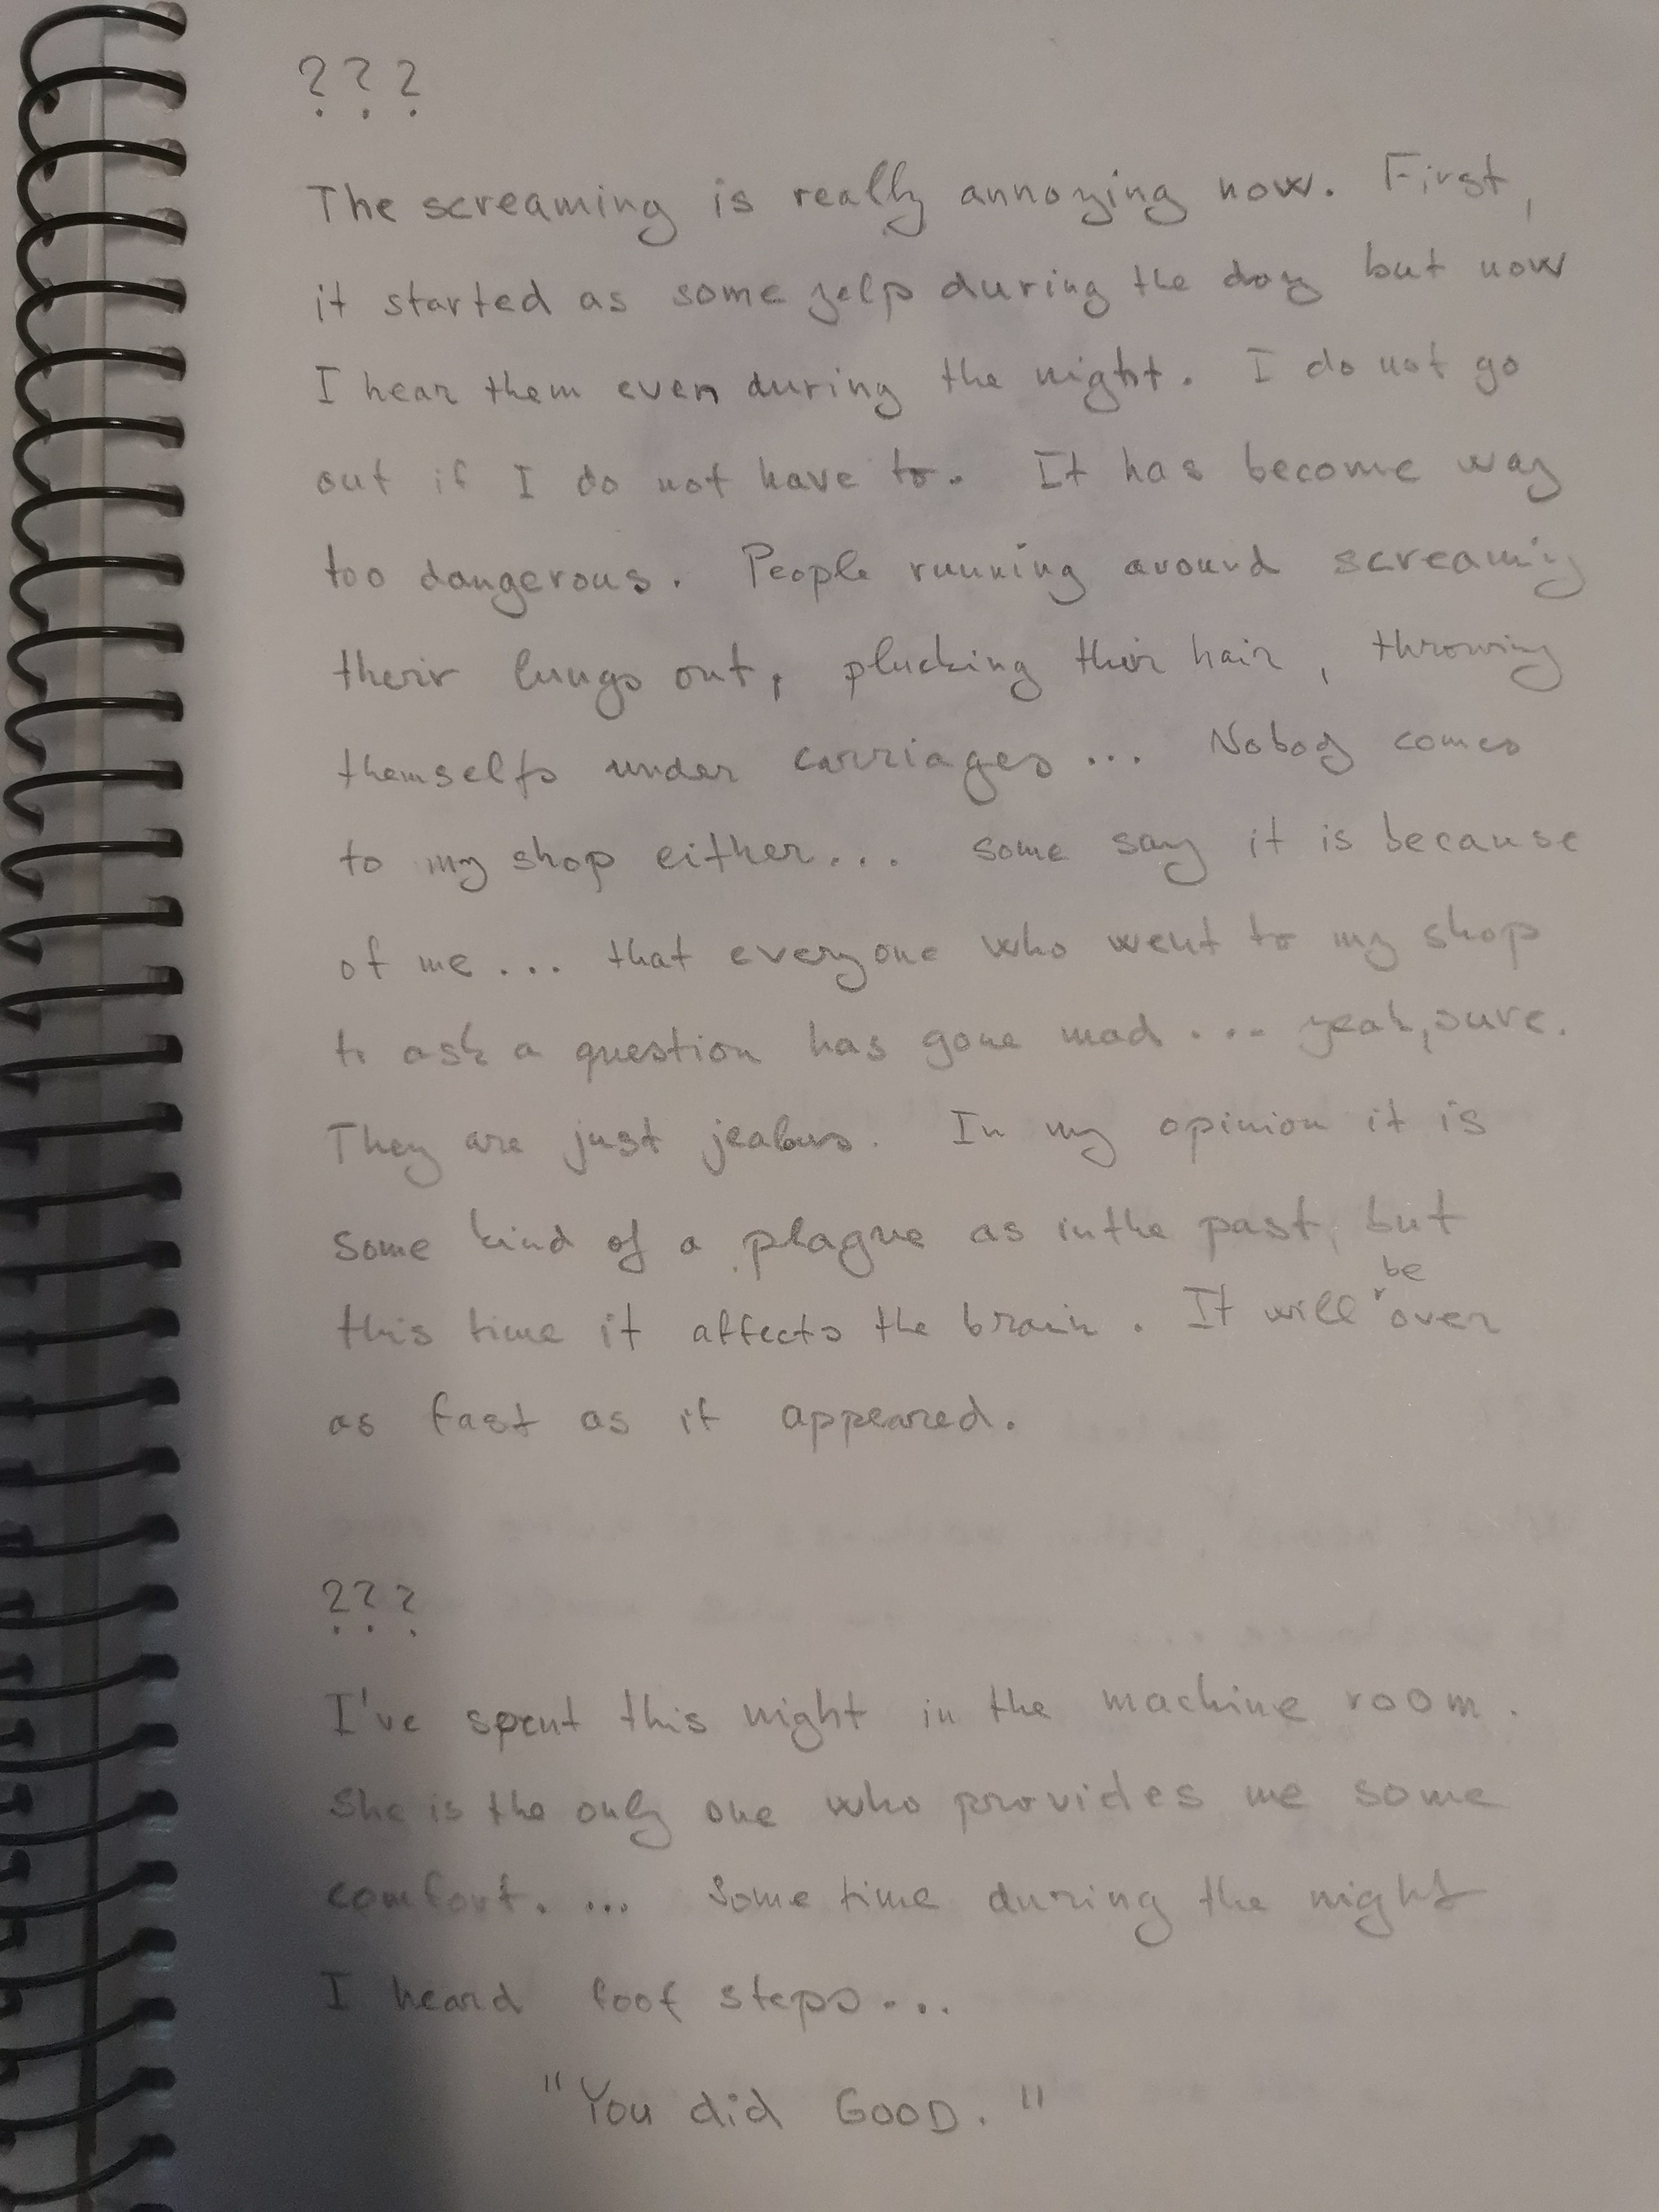 ???
The screaming is really annoying now. First,
it started as some yelp during the day but now
I hear them even during the night. I do not go
out if I do not have to. It has become way
too dangerous. People running around screaming
their lungs out, plucking their hair, throwing
themselfs under carriages... Nobody comes
to my shop either... some say it is because
of me... that everyone who went to my shop
to ask a question has gone mad... yeah, sure.
They are just jealous. In my opinion it is
some kind of a plague as in the past, but
this time it affects the brain. It will be over
as fast as it appeared.
???
I've spent this night in the machine room.
She is the only one who provides me some
comfort. ... Some time during the night
I heard foot steps...
"You did GOOD."